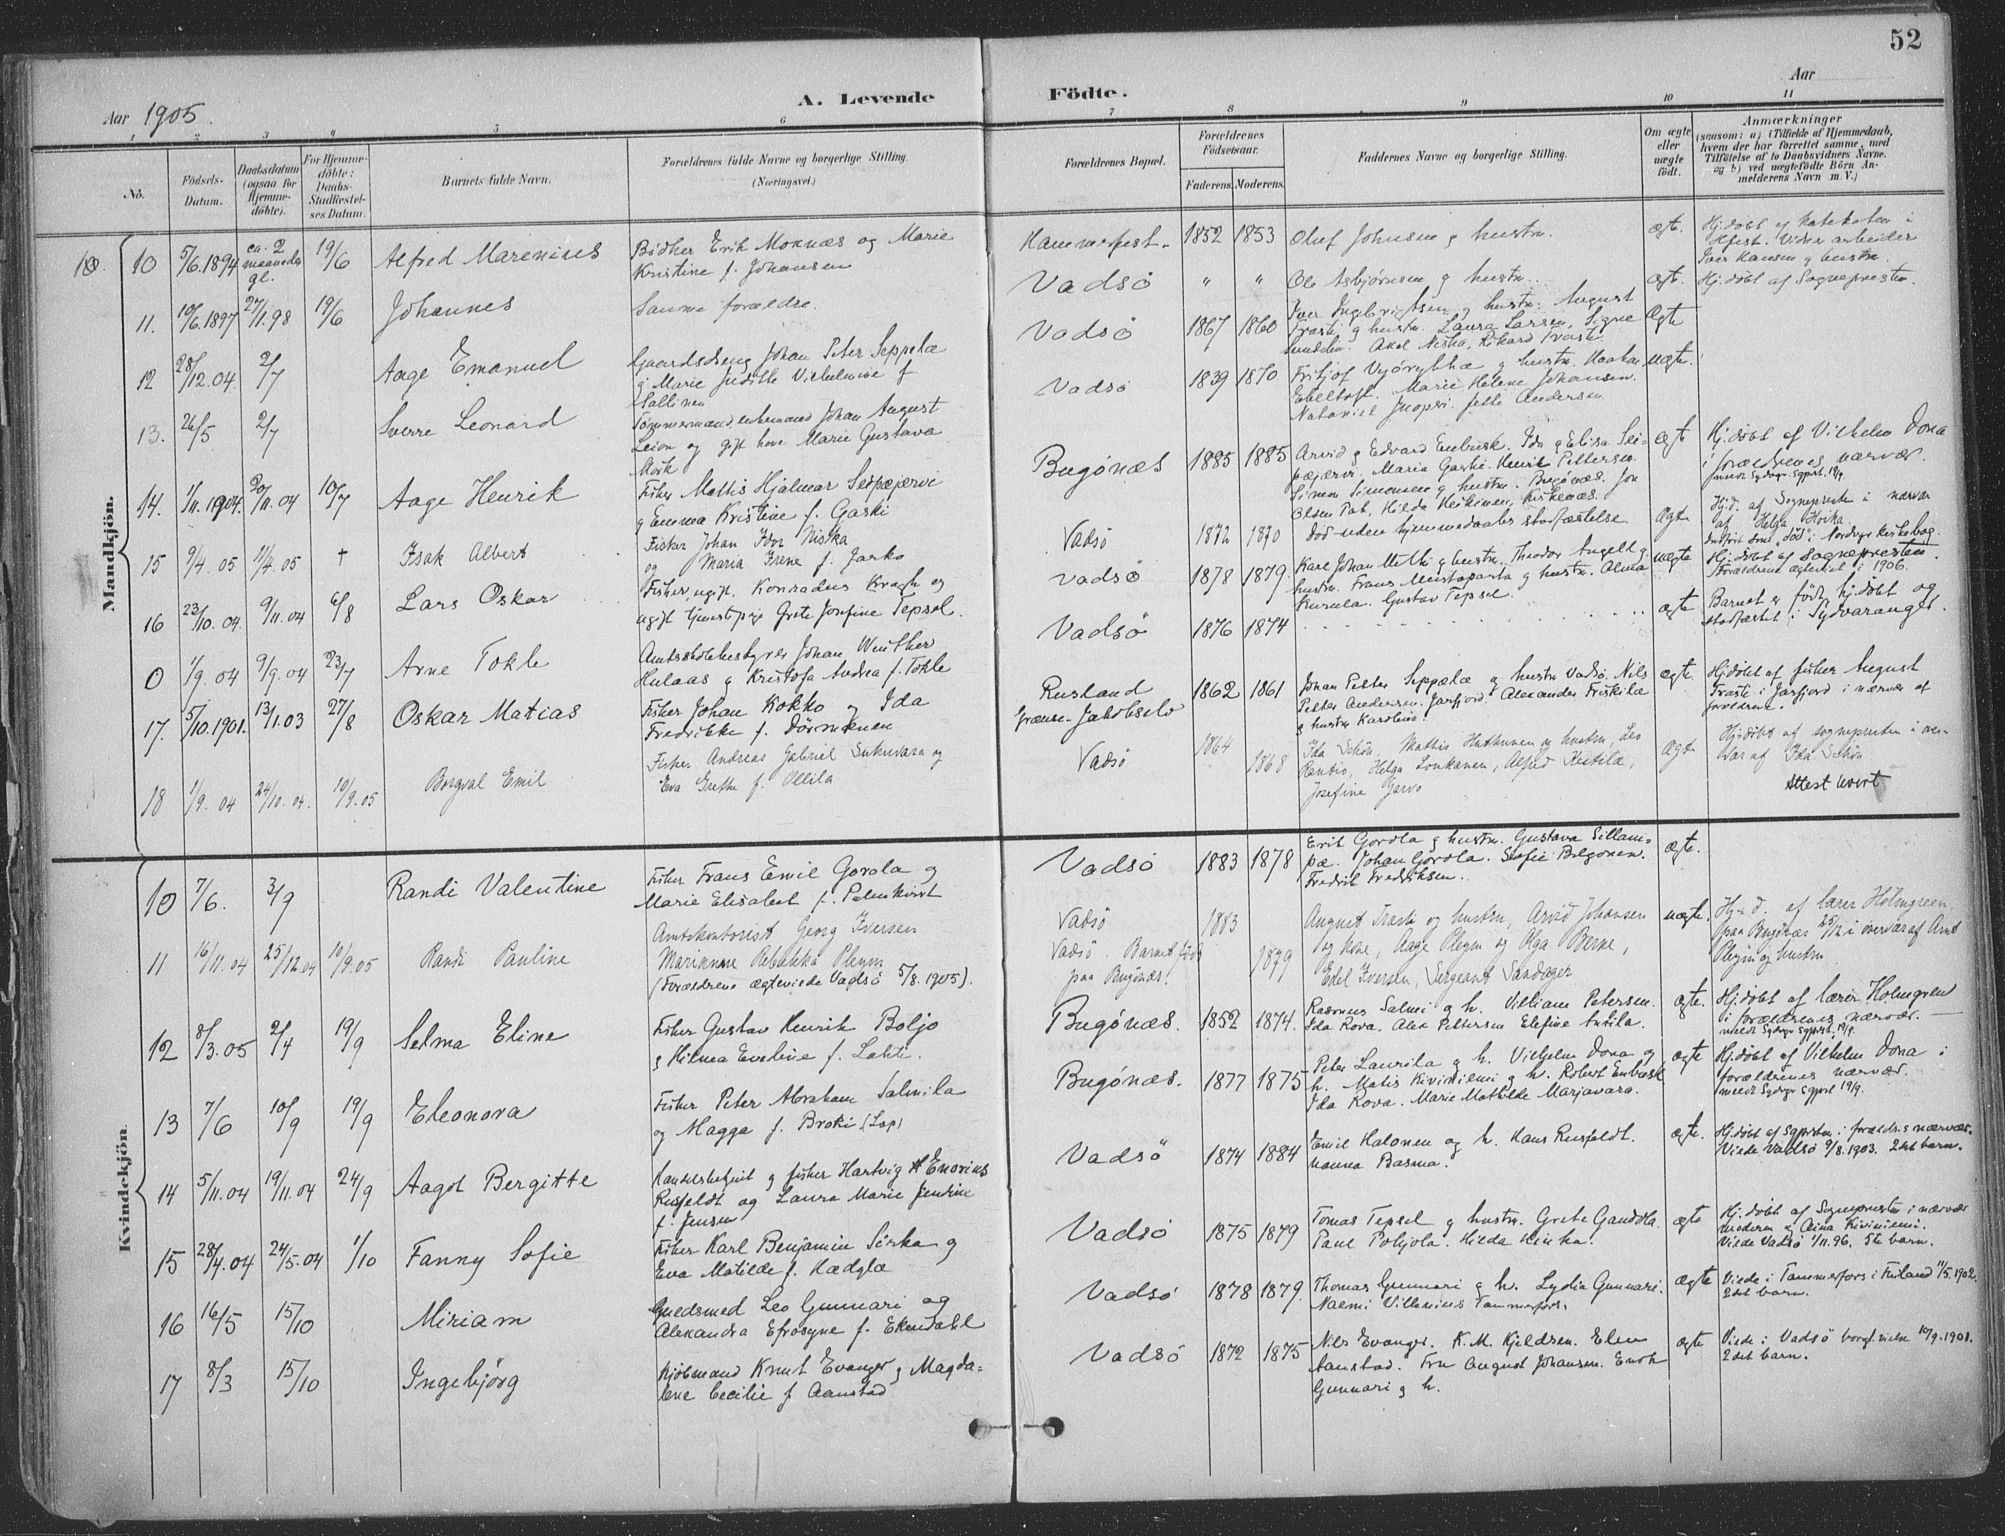 52
Aar 1905.
A. Levende Födte.
Aar
1 2 3 4 5 6 7 8 9 10 11
No.
Födsels-Datum.
Daabsdatum (ogsaa for Hjemme-döbte).
For Hjemme-döbte: Daabs-Stadfæstel-ses Datum.
Barnets fulde Navn.
Forældrenes fulde Navne og borgerlige Stilling.
(Næringsvei.)
Forældrenes Bopæl.
Forældrenes Födselsaar.
Faderens. Moderens.
Faddernes Navne og borgerlige Stilling.
Om ægte eller uægte födt.
Anmærkninger
(saasom: a) i Tilfælde af Hjemmedaab,
hvem der har forrettet samme, med
Tilföielse af to Daabsvidners Navne.
og b) ved uægtefödte Börn An-
melderens Navn m. V.)
Mandkjön.
10 5/6.1894 ca. 2 maaneder gl. 19/6 Alfred Marenius
Bödker Erik Moknæs og Marie
Kristine f. Johansen
Hammerfest. 1852 1853 Oluf Johnsen g hustru. ægt.
Hj.döbt af Kateketen i
Hfest. Vidner arbeider
Iver Hansen g hustru.
11. 10/6.1897 27/1.98 19/6 Johannes
Samme forældre.
Vadsö " " Ole Asbjørnsen g hustru. ægt. Hj.döbt af Sognepresten.
12 28/12.04 2/7 Aage Emanuel
Gaardsdreng Johan Peter Seppelæ
g Marie Judithe Vilhelmine f
Sallinen
Vadsö 1867 1860
Iver Ingebrigtsen g hustru. August
Trasti g hustru. Laura Larsen, Signe
Sundelin. Axel Niska, Rikard Trasti
Ægte
13. 26/5 2/7 Sverre Leonard
Tömmermand, enkemand Johan August
Leion og gift kone Marie Gustava
Mörk
Vadsö 1839 1870
Fritjof g hustru. Haakon
Ebeltoft. Marie Helene Johansen.
Nataniel Juoperi. Jette Andersen.
uægte.
14. 1/11.1904. 20/11.04 10/7 Aage Henrik
Fisker Mattis Hjalmar Seipæjærve
g Emma Kristine f. Gaski
Bugönæs 1885 1885
Arvid g Edvard Enbusk. Ida g Elisa Sei-
pæjærvi. Maria Gaski. Henrik Pettersen.
Simon Simonsen g hustru. Bugönæs. Jon
Olsen Pat, Hilda Heikinen, Kirkenæs.
ægt
Hj.döbt af Vilhelm Dona
i forældrenes nærvær.
15 9/4.05 11/4.05 + Isak Albert
Fisker Johan Ivar Niska
og Maria Irene f. Jarko
Vadsö 1872 1870 Död uden hjemmedaabs stadfæstelse. Ægte
Hj.d. af Sognepresten i nærvær
af Helga Hoika.
16 23/10.04. 9/11.04 6/8 Lars Oskar
Fisker, ugift, Konradus Kragh og
ugift tjenstpige Grete Josefine Tepsel.
Vadsö 1878 1879.
Karl Johan Mitti g hustru. Theodor Angelt g
hustru. Frans Mustaparta g hustru. Alma
Kursula. Gustav Tepsel.
uægte
Hj.döbt af Sognepresten.
Forældrene ægteviet i 1906.
0 1/9.04 9/9.04 23/7 Arne Tokle
Amtsskolebestyrer Johan Winther
Hulaas g Kristofa Andrea f. Tokle
Vadsö 1876 1874 ægte
Barnet er födt, hj.döbt og
stadfæstet i Sydvaranger.
17. 5/10.1901. 13/1.03 27/8 Oskar Matias
Fisker Johan Kokko og Ida
Fredrikke f. Dörmænen
Rusland
Grænse-Jakobselv
1862 1861
Johan Petter Seppælæ g hustru Vadsö. Nils
Petter Andersen. Jarfjord. Alexander Friskilæ
g hustru Karoline.
ægte.
Hj.döbt af fisker August
Trasti i Jarfjord i nærvær af
forældrene.
18 1/9.04 24/10.04. 10/9.05 Borgval Emil
Fisker Andreas Gabriel Sukuvara og
Eva Grethe f. Ollila
Vadsö 1864 1868
Ida Schön, Mathis Huthunen og hustru, Leo
Rantio, Helga Lonkanen, Alfred Kistilæ,
Josefine Jarvo
Ægt
Hj.döbt af sognepresten i over-
vær af Ida Schön
Attest levert
Kvindekjön.
10 7/6. 3/9 Randi Valentine
Fisker Frans Emil Gorola og
Marie Elisabet f. Palmkvist
Vadsö 1883 1878
Erik Gordla g hustru. Gustava Sillam-
pæ. Johan Gordla. Sofie Bilgonen.
Fredrik Fredriksen.
ægte.
11 16/11.04 25/12.04 10/9.05 Randi Pauline
Amtskontorist Georg Iversen
Marianne Rebekka Pleym
(Forældrene ægteviede Vadsö 5/8.1905).
Vadsö
Vadsö. Barnet födt
paa Bugönæs.
1883 1879
August Trasti og hustru, Arvid Johansen
og kone, Aage Pleym og Olga Berne,
Edel Iversen, Sergeant Sandager
uægte.
Hj.d. af lærer Holmgreen
paa Bugönæs 25/12 i overvær af Arnt
Pleym og hustru
12 8/3.05 2/4 19/9 Selma Eline
Fisker Gustav Henrik Boljo
g Hilma Eveline f. Lahti.
Bugönæs. 1852 1874.
Rasmus Salmi g h. Villiam Petersen.
Ida Rova. Alex Pettersen Elefine Antila.
ægte.
Hj.döbt af lærer Holmgren
i forældrenes nærvær.
13 7/6 10/9 19/9 Eleonora
Fisker Peter Abraham Salmila
og Magga f. Broki (Lap)
Bugönæs. 1877 1875
Peter Laurila g h. Vilhelm Dona og
h. Matis Kiviniemi g h. Robert Enbusk
Ida Rova. Marie Mathilde Marjavara.
ægte
Hj.döbt af Vilhelm Dona i
forældrenes nærvær.
14 5/11.04 19/11.04 24/9 Aagot Bergitte
Handelsbetjent g fisker Hartvig Enovius
Rusfeldt og Laura Marie Jendine
f. Jensen
Vadsö 1874 1884
Emil Halonen og h. Hans Rusfeldt.
Nanna Basma.
ægte.
Hj.döbt af Sgprsten. i forældr.s nærvær.
Viede Vadsö 9/8.1903. 2det barn.
15 28/4.04 24/5.04 1/10 Fanny Sofie
Fisker Karl Benjamin Sirka g
Eva Matilde f. Kædglæ
Vadsö 1875 1879
Tomas Tepsel g hustru. Grete Gandola.
Paul Pohjola. Hilda Hinka.
ægte
Hj.döbt af Sognepresten i nærvær
moderen g Aina Kiviniemi.
Viede Vadsö 1/11.96. 5te barn.
16 16/5 15/10 Miriam
Guldsmed Leo Gunnari og
Alexandra Efrosyne f. Ekendahl
Vadsö 1878 1879.
Thomas Gunnari g h. Lydia Gunnari.
Naemi Villenius Tammerfors.
ægte
Viede i Tammerfors i Finland 11/5.1902.
2det barn.
17 8/3 15/10 Ingebjörg
Kjöbmand Knut Evanger g Magda-
lene Cecilie f. Aanstad
Vadsö 1872 1875
Nils Evanger. K.M. Kjeldsen. Elen
Aanstad. Fru August Johansen. Enok
Gunnari g h.
ægte
Viede i Vadsö borgl. vielse 10/9.1901.
2det barn.